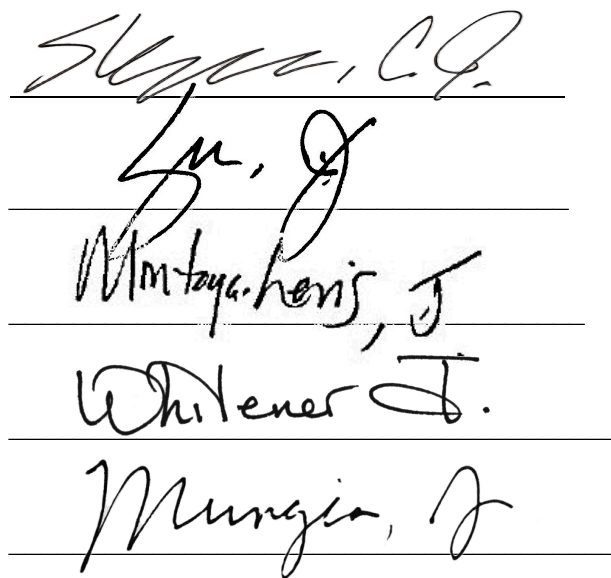 Stephens, C.J.
Yu, J.
Montoya-Lewis, J
Whitener J.
Mungia, J